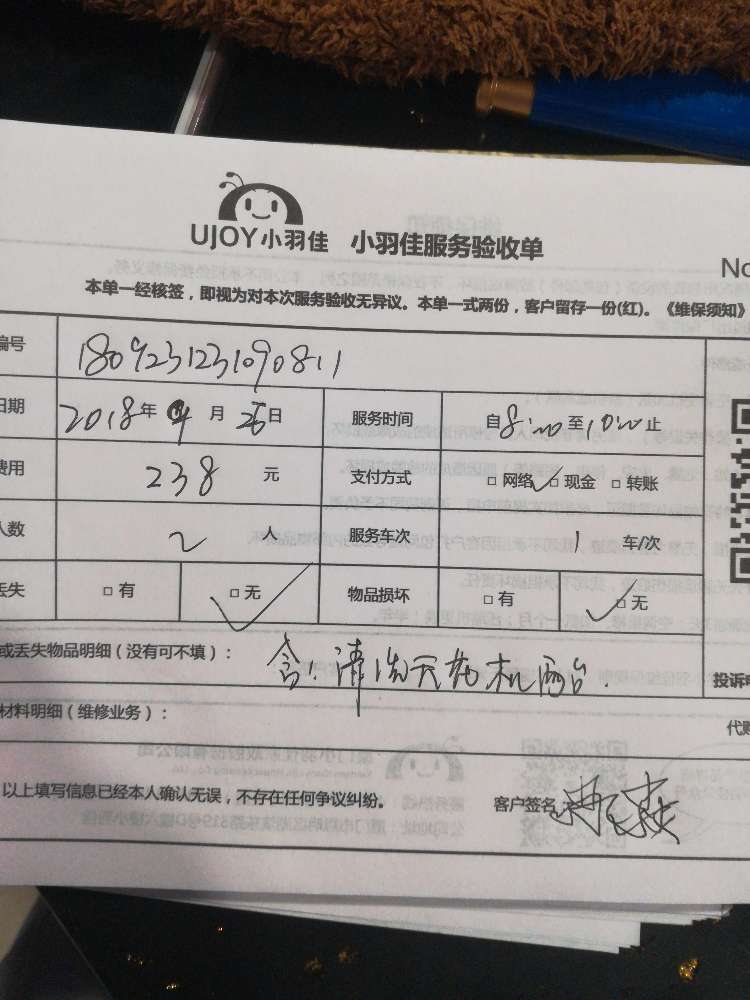 UJOY小羽佳 小羽佳服务验收单
No
本单一经核签，即视为对本次服务验收无异议。本单一式两份，客户留存一份(红)。《维保须知》
编号 1809231231090811
日期 2018年 9 月 26日 服务时间 自8:00至10:00止
费用 238 元 支付方式 □ 网络 □ 现金 □ 转账
人数 2 人 服务车次 1 车/次
丢失 □ 有 □ 无 物品损坏 □ 有 □ 无
或丢失物品明细（没有可不填）： 含：清洗天花机两台. 投诉电
材料明细（维修业务）： 代
以上填写信息已经本人确认无误，不存在任何争议纠纷。 客户签名